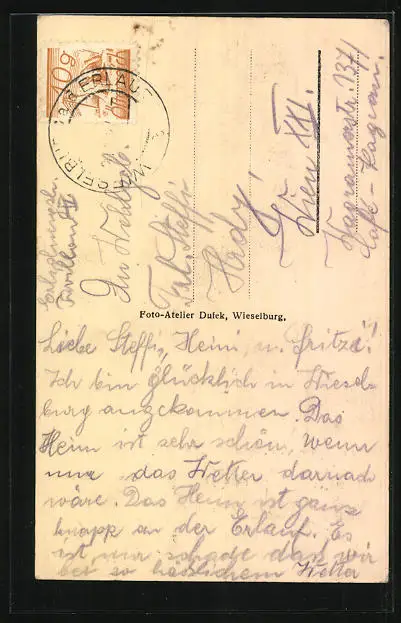 10g
WIESELBURG a.d. ERLAUF
An Wohlgeb.
Frl. Steffi
Hady!
Wien XXI.
Wagramerstr. 137/
Café-Kagran.
Erholungsh.
Pavillon IV
Foto-Atelier Dufek, Wieselburg.
Liebe Steffi, Heini, u. Fritzi!
Ich bin glücklich in Wiesel-
burg angekommen. Das
Heim ist sehr schön, wenn
nur das Wetter darnach
wäre. Das Heim ist ganz
knapp an der Erlauf. Es
ist nur schade daß wir
bei so hässlichem Wetter